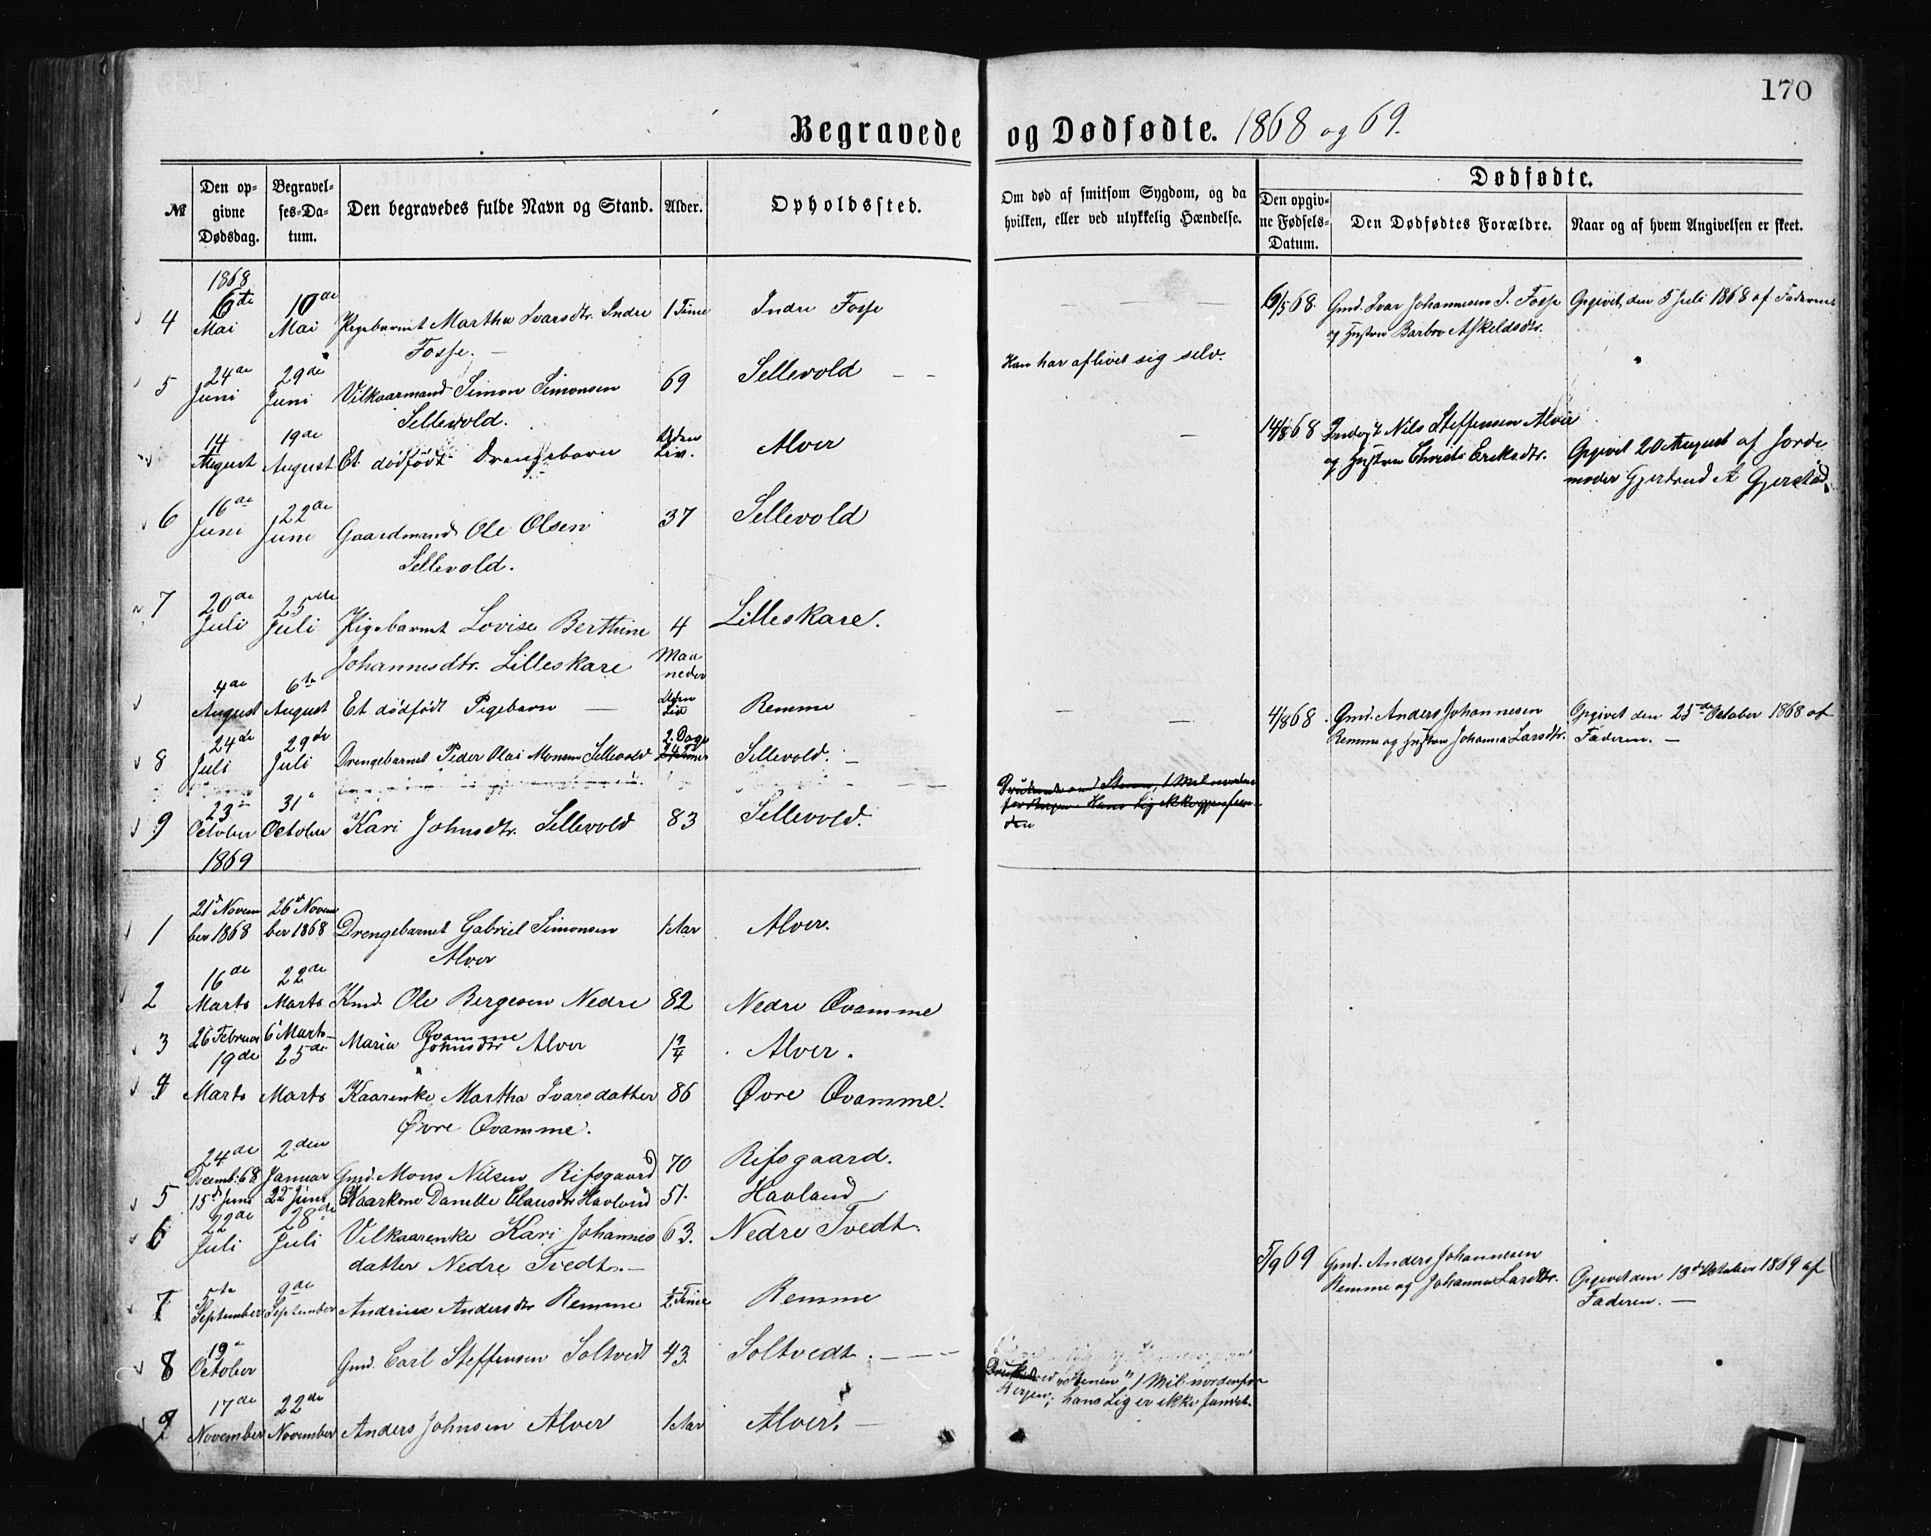 170
Begravede og Dødfødte. 1868 og 69.
№
Den opgivne Dødsdag.
Begravelses-Datum.
Den begravedes fulde Navn og Stand.
Alder.
Opholdssted.
Om død af smitsom Sygdom, og da hvilken, eller ved ulykkelig Hændelse.
Dødfødte.
Den opgivne Fødsels-Datum.
Den Dødfødtes Forældre.
Naar og af hvem Angivelsen er skeet.
1868
4 6te Mai 10de Mai Pigebarnet Martha Ivarsdtr. Indre Fosse. 1 Time Indre Fosse
6/5 68 Gmd. Ivar Johannesen I. Fosse og Hustru Barbro Askeldsdtr. Opgivet den 5 Juli 1868 af Faderen
5 24de Juni 29de Juni Vilkaarmand Simon Simonsen Sellevold. 69 Sellevold
Han har aflivet sig selv.
14 August 19de August Et dødfødt Drengebarn Uden Liv. Alver
14/8 68 Nils Steffensen Alver og Hustru Christi Eriksdtr. Opgivet 20 August af Jordemoder Gjertrud A Gjerstad.
6 16de Juni 22de Juni Gaardmand Ole Olsen Sellevold. 37 Sellevold
7 20de Juli 25de Juli Pigebarnet Lovise Berthine Johannesdtr. Lilleskare 4 Maaneder Lilleskare.
4de August 6te August Et dødfødt Pigebarn Uden Liv Remme
4/8 68 Gmd. Anders Johannesen Remme og Hustru Johanna Larsdtr. Opgivet den 25de October 1868 af Faderen.
8 24de Juli 29de Juli Drengebarnet Peder Olai Monsen Sellevold 2 Dage Sellevold.
9 23de October 31te October Kari Johnsdtr. Sellevold 83 Sellevold.
1869
1 21d November 1868 26d November 1868 Drengebarnet Gabriel Simonsen Alver 1 Aar Alver.
2 16de Marts 22de Marts Kmd. Ole Bergesen Nedre Qvamme 82 Nedre Qvamme
3 26 Februar 6 Marts Maria Johnsdtr Alver 1 3/4 Alver.
4 19de Marts 25de Marts Kaarenke Martha Ivarsdatter Øvre Qvamme. 86 Øvre Qvamme.
24de Decemb. 68 2den Januar Gmd. Mons Nilsen Rifsgaard 70 Rifsgaard.
5 15d Juni 22 Juni Kaarkone Danelle Clausdtr Havland 51. Havland
6 22de Juli 28de Juli Vilkaarenke Kari Johannesdatter Nedre Tvedt. 63. Nedre Tvedt.
7 5te September 9de September Andrine Andersdtr Remme 1/2 Time Remme
5/9 69 Gmd. Anders Johannesen Remme og Johanna Larsdtr. Opgivet den 13d October 1869 af Faderen.
8 19de October Gmd. Carl Steffensen Soltvedt 43. Soltvedt.
Druknet ved "Stenen" 1 Mil nordenfor Bergen; hans Lig er ikke fundet.
9 17de November 22de November Anders Johnsen Alver 1 Aar Alver.